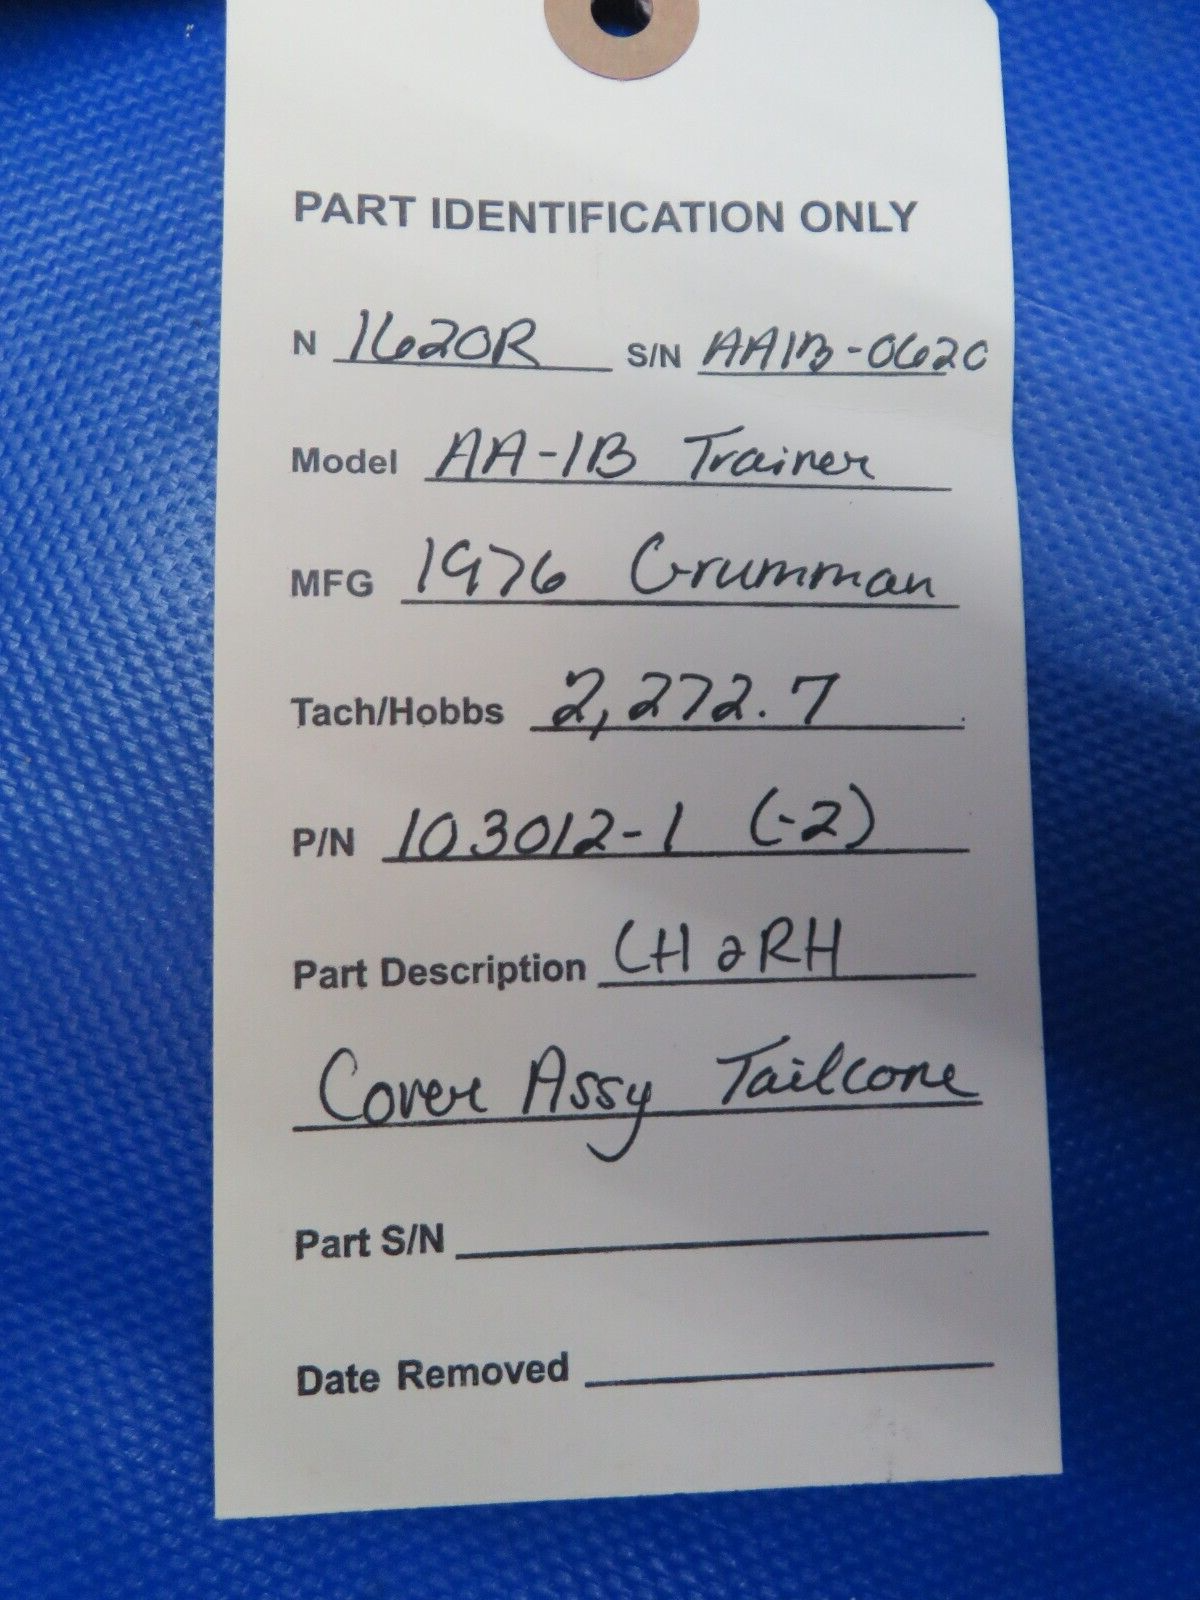 PART IDENTIFICATION ONLY
N 1620R S/N AA1B-0620
Model AA-1B Trainer
MFG 1976 Grumman
Tach/Hobbs 2,272.7
P/N 103012-1 (-2)
Part Description LH & RH
Cover Assy Tailcone
Part S/N
Date Removed